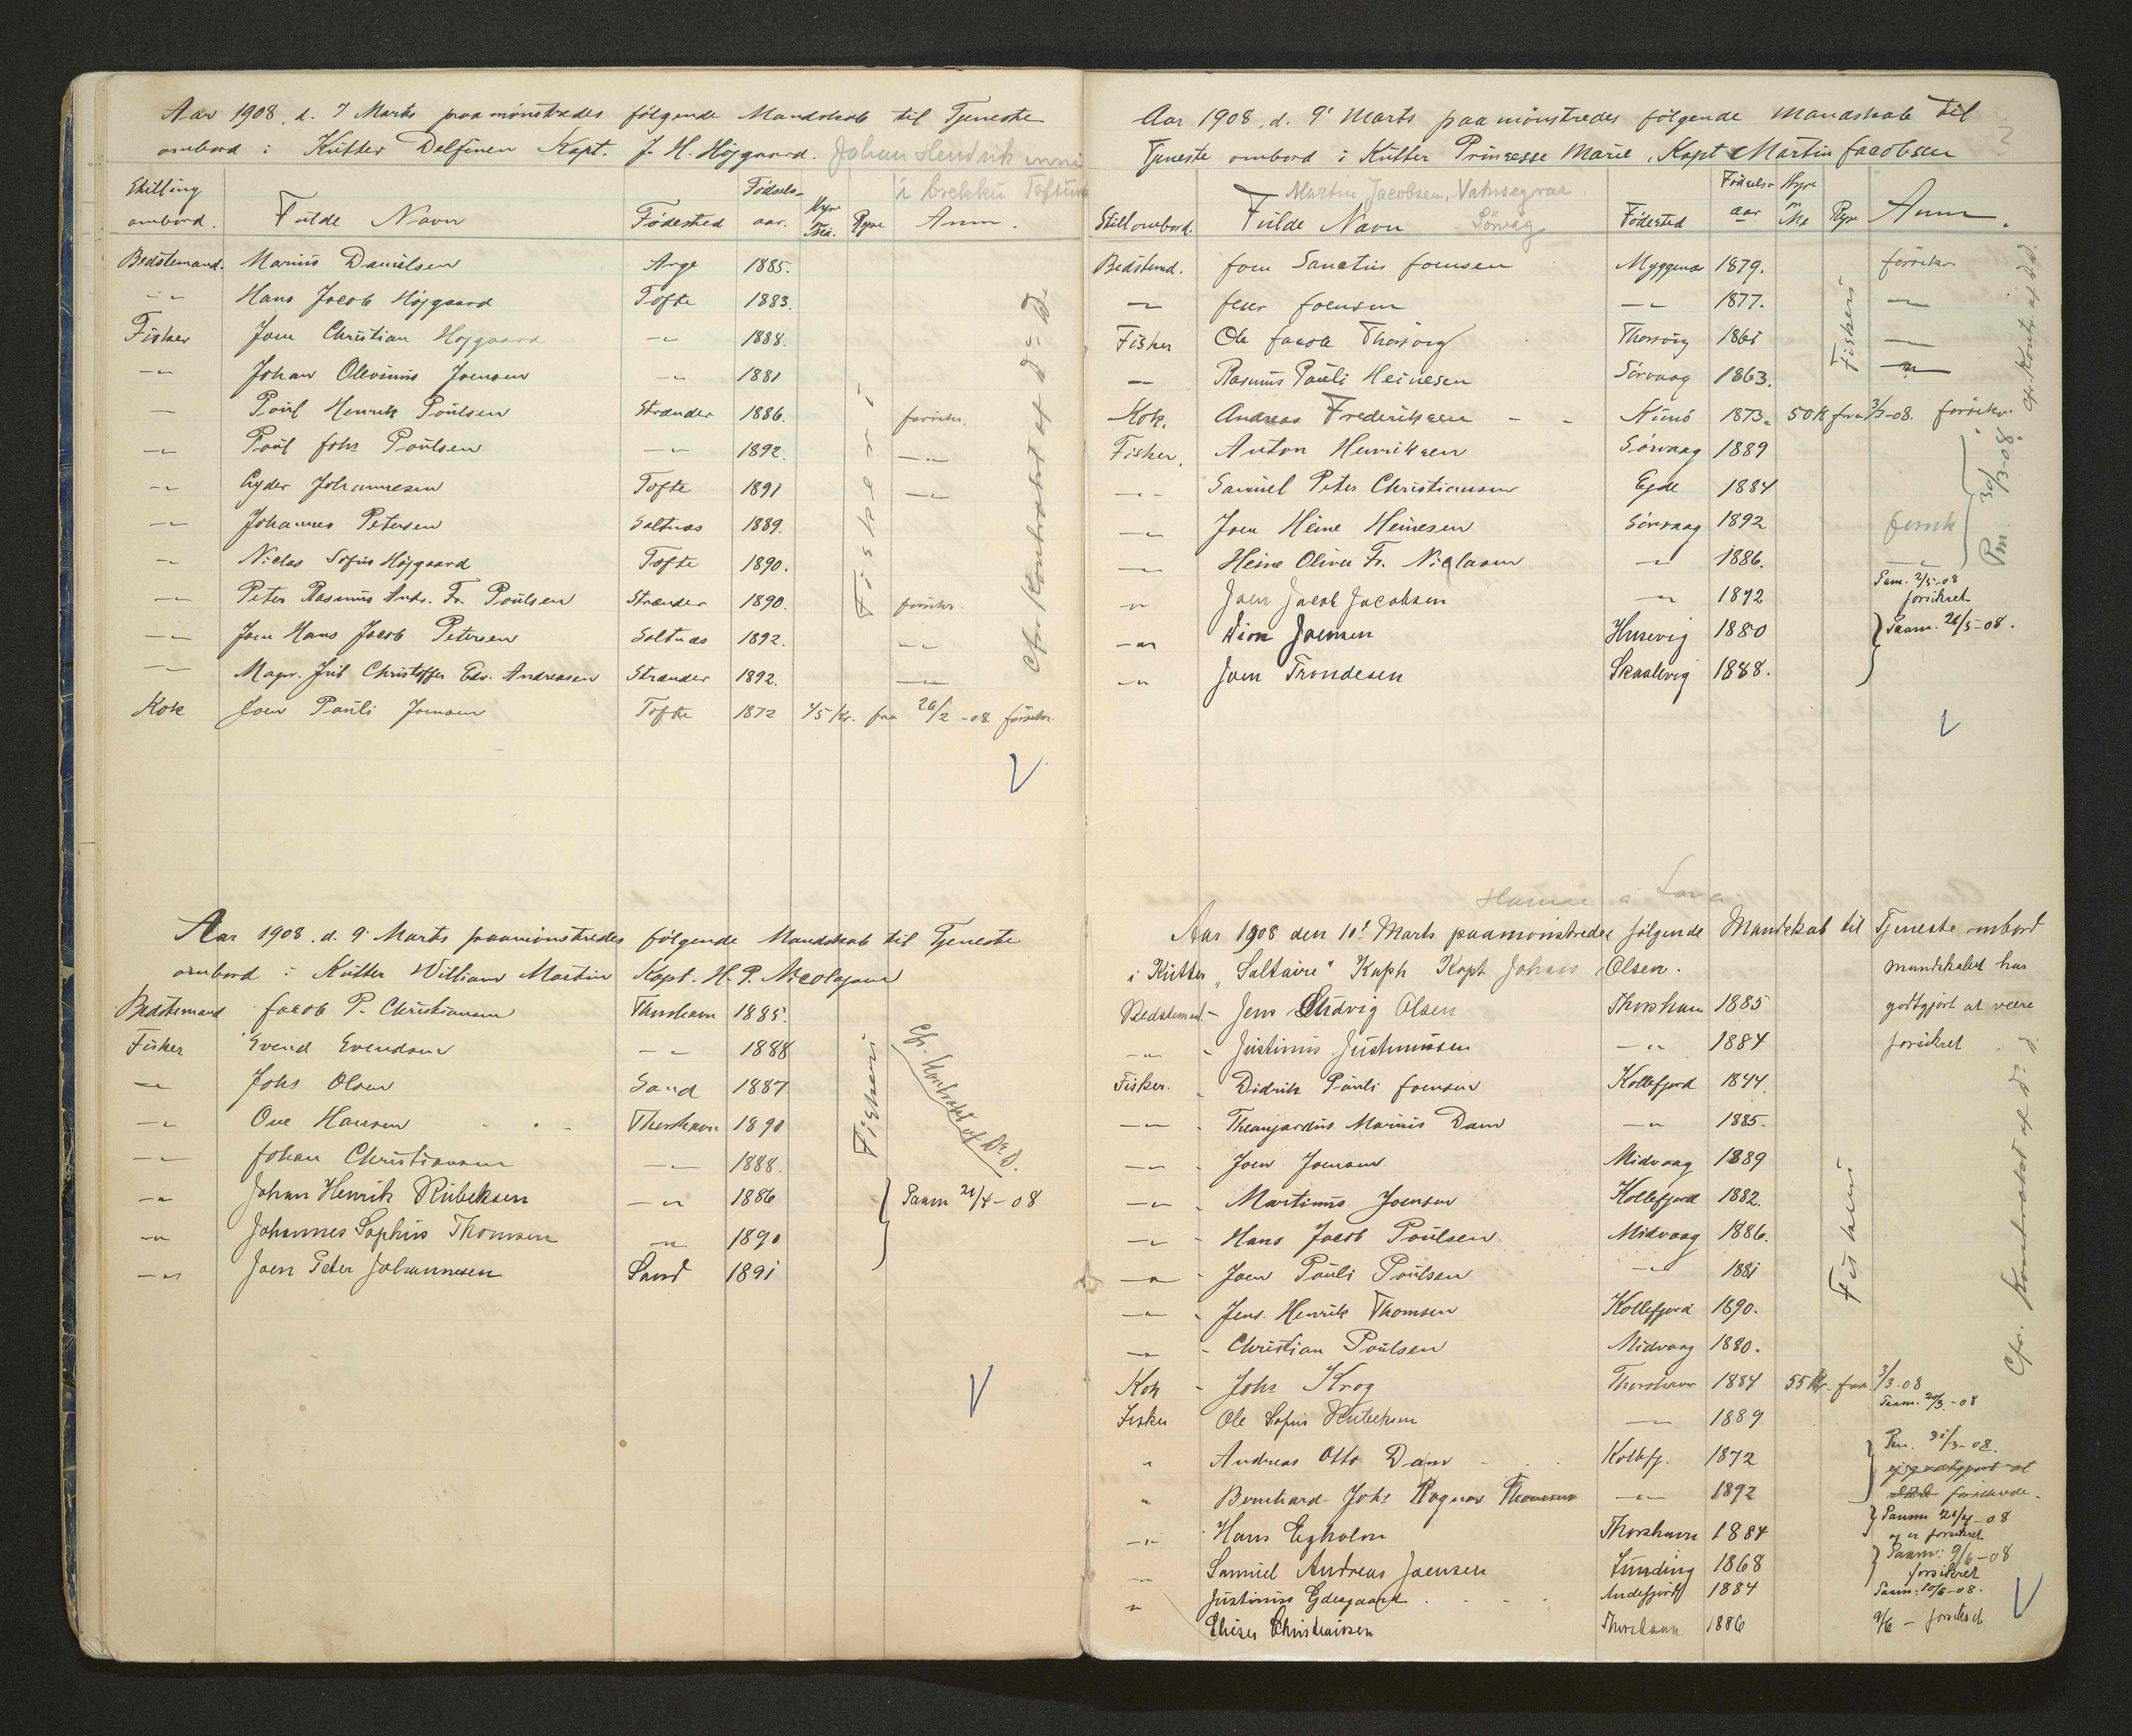 Aar 1908, d. 7 Marts paamönstredes fölgende Mandskab til Tjeneste
ombord i Kutter Delfinen Kapt. J. H. Höjgaard. Johan Hendrik inni
í brekku Toftum
Stilling ombord. Fulde Navn Födested Födsels-aar. Hyre pr. Md. Rejse Anm.
Bedstemand. Marius Danielsen Arge 1885.
-"- Hans Jacob Höjgaard Tofte 1883.
Fisker Joen Christian Höjgaard -"- 1888.
-"- Johan Olevinus Joensen -"- 1881
— Poul Henrik Poulsen Strænder 1886. forsikr.
-"- Poul Johs Poulsen -"- 1892. -"-
-"- Gyder Johannesen Tofte 1891 -"-
-"- Johannes Petersen Saltnæs 1889.
-"- Niclas Sofus Höjgaard Tofte 1890.
-"- Peter Rasmus Andr. Fr. Poulsen Strænder 1890. forsikr.
-"- Joen Hans Jacob Petersen Saltnæs 1892. -"-
-"- Magn. Jul Christoffer Edv. Andreasen Strænder 1892. -"-
Kok Joen Pauli Joensen Tofte 1872 45 Kr. fra 26/2 -08 forsikr.
Fiskeri
Cfr. Kontraktet af D: D.
Aar 1908. d. 9' Marts paamönstredes fölgende Mandskab til Tjeneste
ombord i Kutter William Martin Kapt. H. P. Nicolajsen
Bedstemand Jacob P. Christiansen Thorshavn 1885.
Fisker Svend Svendsen -"- 1888
-"- Johs Olsen Sand 1887
-"- Ove Hansen Thorshavn 1890
-"- Johan Christiansen -"- 1888.
-"- Johan Henrik Rubeksen -"- 1886 Paam 21/4-08
-"- Johannes Sophus Thomsen -"- 1890
-"- Joen Peter Johannesen Sand 1891
Fiskeri
Cfr. Kontrakt af D: D.
Aar 1908, d. 9' Marts paamönstredes fölgende Mandskab til
Tjeneste ombord i Kutter Prinsesse Marie, Kapt Martin Jacobsen
Martin Jacobsen, Vatnsegrar
Sörvág
Still ombord. Fulde Navn Födested Födsels-aar Hyre pr. Md Rejse Anm.
Bedstemd. Joen Sanctus Joensen Myggenæs 1879. forsikr.
-"- Jens Joensen -"- 1877. -"-
Fisker Ole Jacob Thorsvig Thorsvig 1861 -"-
-"- Rasmus Pauli Heinesen Sörvaag 1863. -"-
Kok. Andreas Frederiksen Kunö 1873. 50 K fra 3/3-08. forsikr.
Fisker. Anton Henriksen Sörvaag 1889
-"- Samuel Peter Christiansen Ejde 1884
-"- Joen Heine Heinesen Sörvaag 1892 forsik
-"- Heine Oliver Fr. Niclasen -"- 1886. -"-
-"- Joen Jacob Jacobsen -"- 1892 Paam. 2/5-08 forsikret
-"- Dion Joensen Husevig 1880 Paam. 26/5-08.
-"- Joen Trondesen Skaalevig 1888.
Fiskeri
Pm. 30/3-08.
Cfr. Kontr. af D.D.
Aar 1908 den 10! Marts paamönstredes fölgende Mandskab til Tjeneste ombord
i Kutter „Saltaire" Kaph Kapt Johan Olsen. Mandskabet har
Bedstemand - Jens Ludvig Olsen Thorshavn 1885 godtgjort at være
-"- - Justinus Justinussen -"- 1884 forsikret
Fisker. - Didrik Pauli Joensen Kollefjord 1844.
-"- - Theangardus Marius Dam -"- 1885.
-"- - Joen Joensen Midvaag 1889
-"- - Martinus Joensen Kollefjord 1882.
-"- - Hans Jacob Poulsen Midvaag 1886.
-"- - Joen Pauli Poulsen -"- 1881
-"- - Jens Henrik Thomsen Kollefjord 1890.
-"- - Christian Poulsen Midvaag 1880.
Kok - Johs Krog Thorshavn 1884 55 Kr. fra 3/3-08
Fisker Ole Sofus Rubeksen -"- 1889 Paam. 20/3-08
" Andreas Otto Dam Kollefj. 1872 Pm. 31/3-08.
" Bernhard Johs Ragnar Thomsen -"- 1892 forsikrede.
-"- Hans Egholm Thorshavn 1884 Paam 21/4-08 og er forsikret
-"- Samuel Andreas Joensen Funding 1868 Paam: 9/6-08 forsikret
" Justinus Ejdesgaard Andefjord 1884 Paam: 10/6-08.
Elieser Christiansen Thorshavn 1886 9/6 - forsikret
Fiskeri
Cfr. Kontraktet af D: D.